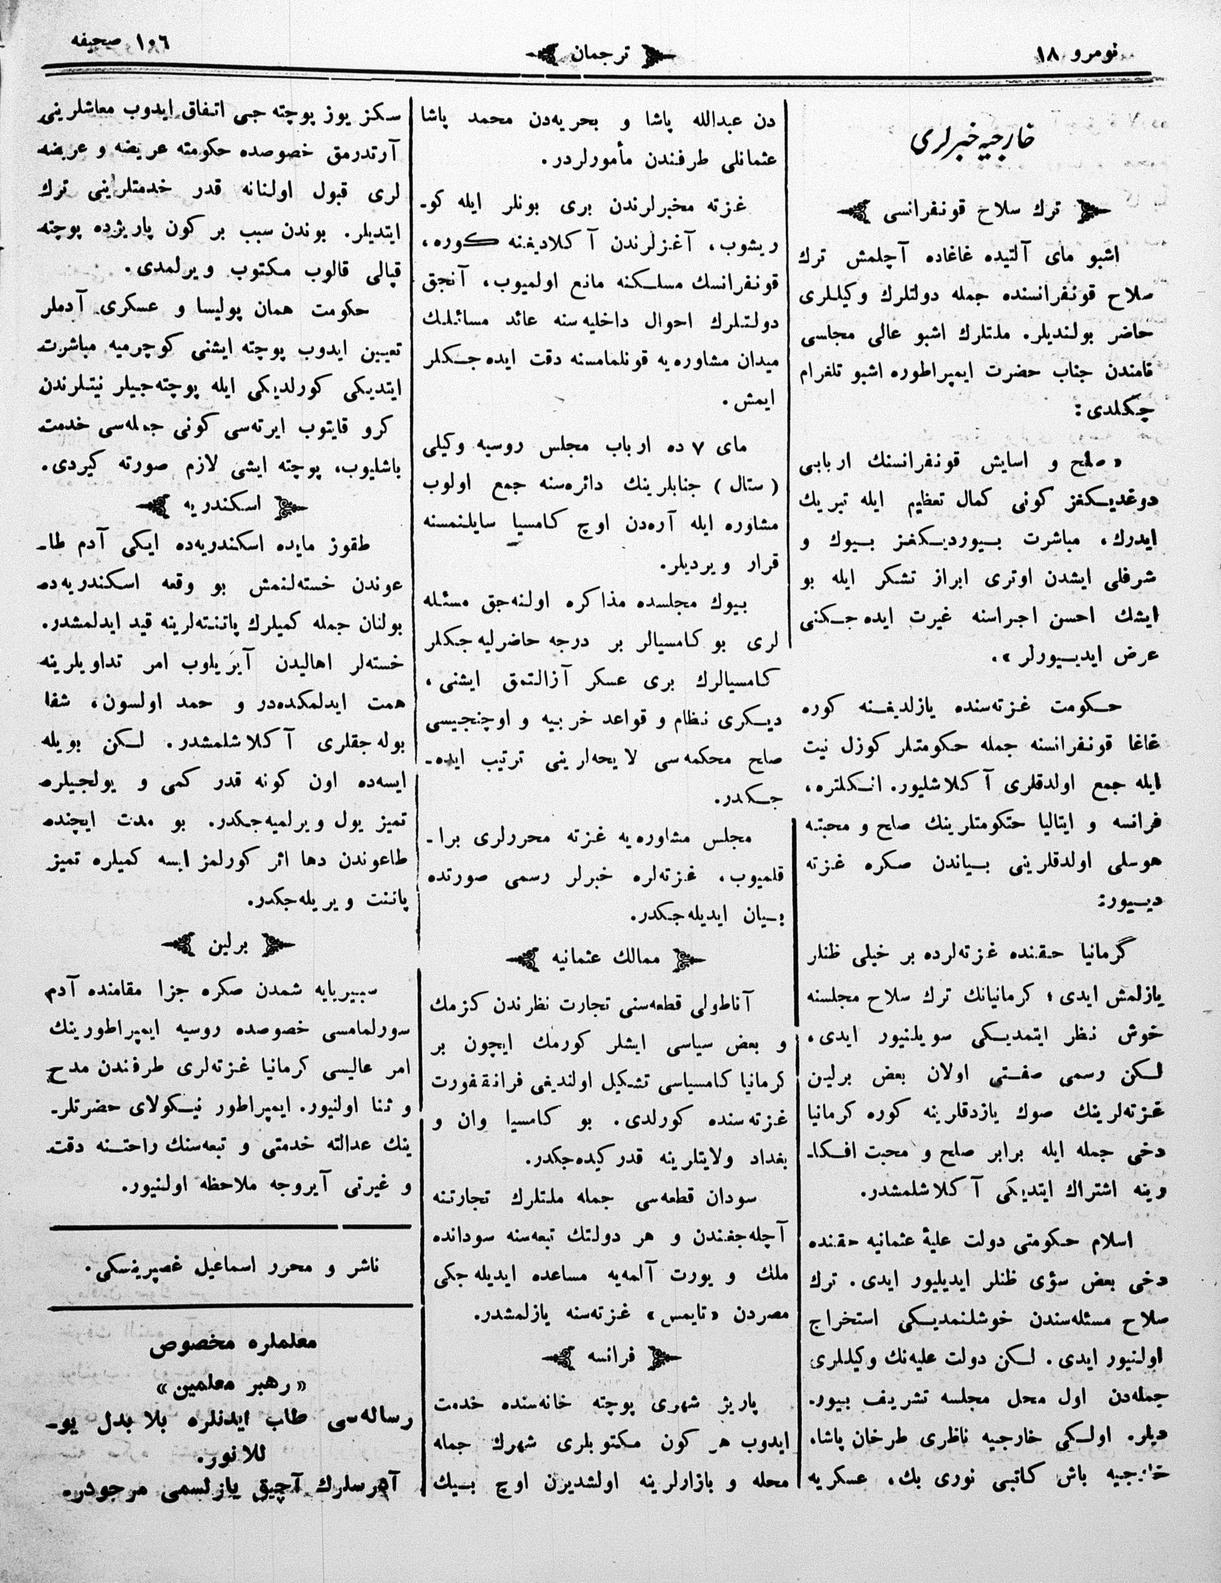 نومرو ١٨
ترجمان
١٠٦ صحیفه
خارجیه خبرلری
ترك سلاح قونفرانسی
اشبو مای آلتیده غاغاده آچلمش ترك
صلاح قونفرانسنده جمله دولتلرك وكیللری
حاضر بولندیلر. ملتلرك اشبو عالی مجلسی
نامندن جناب حضرت ایمپراطوره اشبو تلغرام
چكلدی:
«صلح و اسایش قونفرانسنك اربابی
دوغدیكغز كونی كمال تعظیم ایله تبریك
ایدرك، مباشرت بیوردیكغز بیوك و
شرفلی ایشدن اوتری ابراز تشكر ایله بو
ایشك احسن اجراسنه غیرت ایده‌جكنی
عرض ایدییورلر».
حكومت غزته‌سنده یازلدیغنه كوره
غاغا قونفرانسنه جمله حكومتلر كوزل نیت
ایله جمع اولدقلری آكلاشلیور. انكلتره،
فرانسه و ایتالیا حتكومتلرینك صلح و محبته
هوسلی اولدقلرینی بیاندن صكره غزته
دییور:
گرمانیا حقنده غزته‌لرده بر خیلی ظنلر
یازلمش ایدی؛ كرمانیانك ترك سلاح مجلسنه
خوش نظر ایتمدیكی سویلنیور ایدی،
لكن رسمی صفتی اولان بعض برلین
غزته‌لرینك صوك یازدقلرینه كوره كرمانیا
دخی جمله ایله برابر صلح و محبت افكا-
رینه اشتراك ایتدیكی آكلاشلمشدر.
اسلام حكومتی دولت علیهٔ عثمانیه حقنده
دخی بعض سؤی ظنلر ایدیلیور ایدی. ترك
صلاح مسئله‌سندن خوشلنمدیكی استخراج
اولنیور ایدی. لكن دولت علیه‌نك وكیللری
جمله‌دن اول محل مجلسه تشریف بیور-
دیلر. اولكی خارجیه ناظری طرخان پاشا،
خارجیه باش كاتبی نوری بك، عسكریه
دن عبدالله پاشا و بحریه‌دن محمد پاشا
عثمانلی طرفندن مأمورلردر.
غزته مخبرلرندن بری بونلر ایله كو-
ریشوب، آغزلرندن آكلادیغنه كوره،
قونفرانسك مسلكنه مانع اولمیوب، آنجق
دولتلرك احوال داخلیه‌سنه عائد مسائلك
میدان مشاوره‌یه قونلمامسنه دقت ایده‌جكلر
ایمش.
مای ٧ ده ارباب مجلس روسیه وكیلی
(ستال) جنابلرینك دائره‌سنه جمع اولوب
مشاوره ایله آره‌دن اوچ كامسیا سایلنمسنه
قرار ویردیلر.
بیوك مجلسده مذاكره اولنه‌جق مسئله
لری بو كامسیالر بر درجه حاضرلیه‌جكلر
كامسیالرك بری عسكر آزالتمق ایشنی،
دیكری نظام و قواعد حربیه و اوچنجیسی
صلح محكمه‌سی لایحه‌لرینی ترتیب ایده-
جكدر.
مجلس مشاوره‌یه غزته محررلری برا-
قلمیوب، غزته‌لره خبرلر رسمی صورتده
بیان ایدیله‌جكدر.
ممالك عثمانیه
آناطولی قطعه‌سنی تجارت نظرندن كزمك
و بعض سیاسی ایشلر كورمك ایچون بر
كرمانیا كامسیاسی تشكیل اولندیغی فرانقفورت
غزته‌سنده كورلدی. بو كامسیا وان و
بغداد ولایتلرینه قدر كیده‌جكدر.
سودان قطعه‌سی جمله ملتلرك تجارتنه
آچله‌جغندن و هر دولتك تبعه‌سنه سودانده
ملك و یورت آلمه‌یه مساعده ایدیله‌جكی
مصردن «تایمس» غزته‌سنه یازلمشدر.
فرانسه
پاریژ شهری پوچته خانه‌سنده خدمت
ایدوب هر كون مكتوبلری شهرك جمله
محله و بازارلرینه اولشدیرن اوچ بیك
سكز یوز پوچته جی اتفاق ایدوب معاشلرینی
آرتدرمق خصوصده حكومته عریضه و عریضه
لری قبول اولنانه قدر خدمتلرینی ترك
ایتدیلر. بوندن سبب بر كون پاریژده پوچته
قپالی قالوب مكتوب ویرلمدی.
حكومت همان پولیسا و عسكری آدملر
تعیین ایدوب پوچته ایشنی كوچرمیه مباشرت
ایتدیكی كورلدیكی ایله پوچته‌جیلر نیتلرندن
كرو قایتوب ایرته‌سی كونی جمله‌سی خدمت
باشلیوب، پوچته ایشی لازم صورته كیردی.
اسكندریه
طقوز مایده اسكندریه‌ده ایكی آدم طا-
عوندن خسته‌لنمش بو وقعه اسكندریه‌ده
بولنان جمله كمیلرك پاتنته‌لرینه قید ایدلمشدر.
خسته‌لر اهالیدن آیریلوب امر تداویلرینه
همت ایدلمكده‌در و حمد اولسون، شفا
بوله‌جقلری آكلاشلمشدر. لكن بویله
ایسه‌ده اون كونه قدر كمی و یولجیلره
تمیز یول ویرلمیه‌جكدر. بو مدت ایچنده
طاعوندن دها اثر كورلمز ایسه كمیلره تمیز
پاتنت ویریله‌جكدر.
برلین
سیبیریایه شمدن صكره جزا مقامنده آدم
سورلمامسی خصوصده روسیه ایمپراطورینك
امر عالیسی كرمانیا غزته‌لری طرفندن مدح
و ثنا اولنیور. ایمپراطور نیكولای حضرتلر-
ینك عدالته خدمتی و تبعه‌سنك راحتنه دقت
و غیرتی آیروجه ملاحظه اولنیور.
ناشر و محرر اسماعیل غصپرینسكی.
معلملره مخصوص
«رهبر معلمین»
رساله‌سی طلب ایدنلره بلا بدل یو-
للانور.
آدرسلرك آچیق یازلسمی مرجودر.